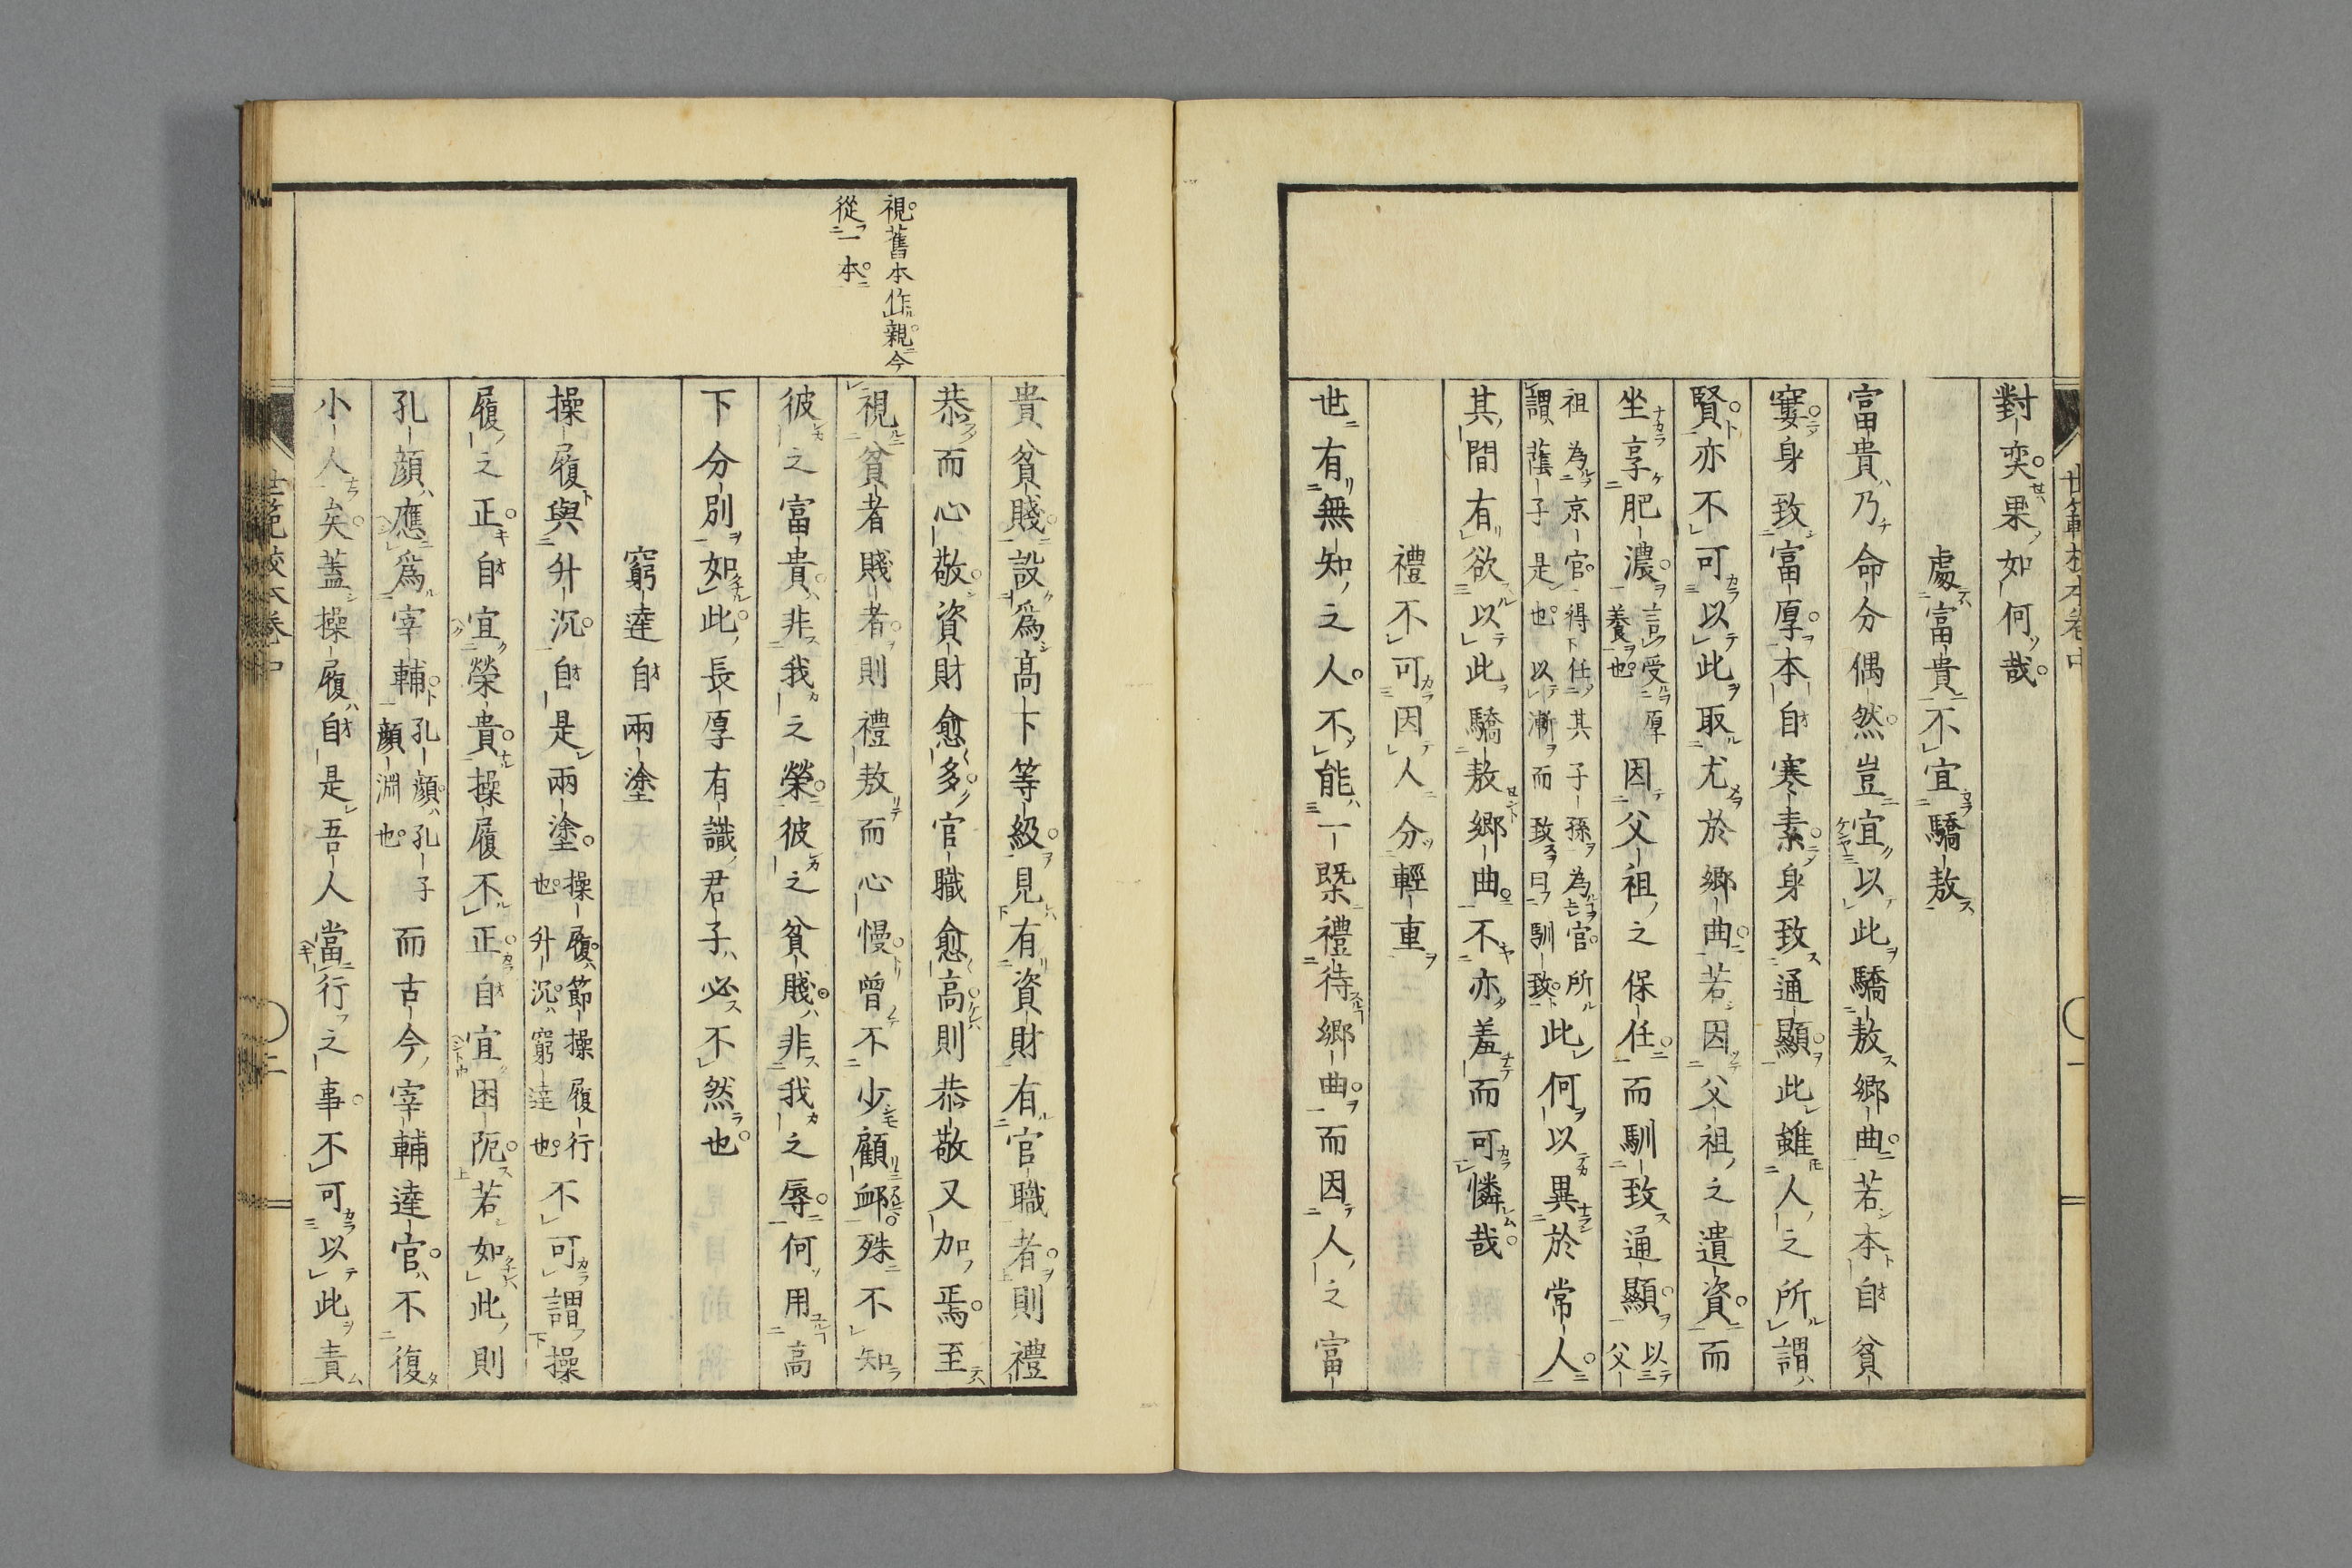 對奕果如何哉
處富貴不宜驕敖
富貴乃命分偶然豈宜以此驕敖鄉曲若本自貧
窶身致富厚本自寒素身致通顯此雖人之所謂
賢亦不可以此取尤於鄉曲若因父祖之遺資而
坐享肥濃言受厚養也因父祖之保任而馴致通顯以父
祖為京官得任其子孫為官所謂蔭子是也以漸而致曰馴致此何以異於常人
其間有欲以此驕敖鄉曲不亦羞而可憐哉
禮不可因人分輕重
世有無知之人不能一槩禮待鄉曲而因人之富
視舊本作親今
從一本
貴貧賤設爲高下等級見有資財有官職者則禮
恭而心敬資財愈多官職愈高則恭敬又加焉至
視貧者賤者則禮敖而心慢曾不少顧卹殊不知
彼之富貴非我之榮彼之貧賤非我之辱何用高
下分別如此長厚有識君子必不然也
窮達自兩塗
操履與升沉自是兩塗操履節操履行也升沉窮達也不可謂操
履之正自宜榮貴操履不正自宜困阨若如此則
孔顏應爲宰輔孔顏孔子顏淵也而古今宰輔達官不復
小人矣蓋操履自是吾人當行之事不可以此責